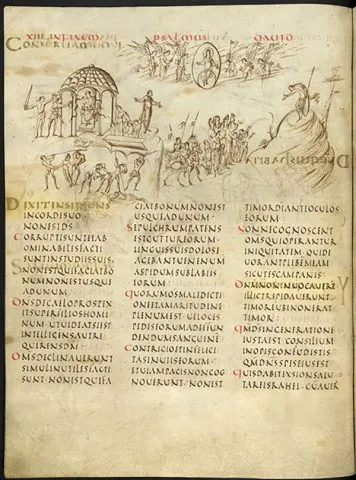 XIII INFINEM PSALMUS DAUID
DIXIT INSIPIENS
INCORDESUO
NONESTDS
CORRUPTISUNTETAB
OMINABILESFACTI
SUNTINSTUDIISSUIS
NONESTQUIFACIATBO
NUMNONESTUSQUE
ADUNUM
DNSDECAELOPROSPEX
ITSUPERFILIOSHOMI
NUMUTUIDEATSIEST
INTELLEGENSAUTRE
QUIRENSDM
OMSDECLINAUERUNT
SIMULINUTILESFACTI
SUNTNONESTQUIFA
CIATBONUMNONEST
USQUEADUNUM
SEPULCHRUMPATENS
ESTGUTTUREORUM
LINGUISSUISDOLOSE
AGEBANTUENENUM
ASPIDUMSUBLABIIS
EORUM
QUORUMOSMALEDICTI
ONEETAMARITUDINE
PLENUMESTUELOCES
PEDESEORUMADEFFUN
DENDUMSANGUINE
CONTRITIOETINFELICI
TASINUIISEORUM
ETUIAMPACISNONCOG
NOUERUNTNONEST
TIMORDIANTEOCULOS
EORUM
NONNECOGNOSCENT
OMSQUIOPERANTUR
INIQUITATEMQUIDE
UORANTPLEBEMMEAM
SICUTESCAMPANIS
DNMNONINUOCAUER
ILLICTREPIDAUERUNT
TIMOREUBINONERAT
TIMOR
QMDSINGENERATIONE
IUSTAESTCONSILIUM
INOPISCONFUDISTIS
QMDNSSPESEIUSEST
QUISDABITEXSIONSALU
TAREISRAHELCUAUER